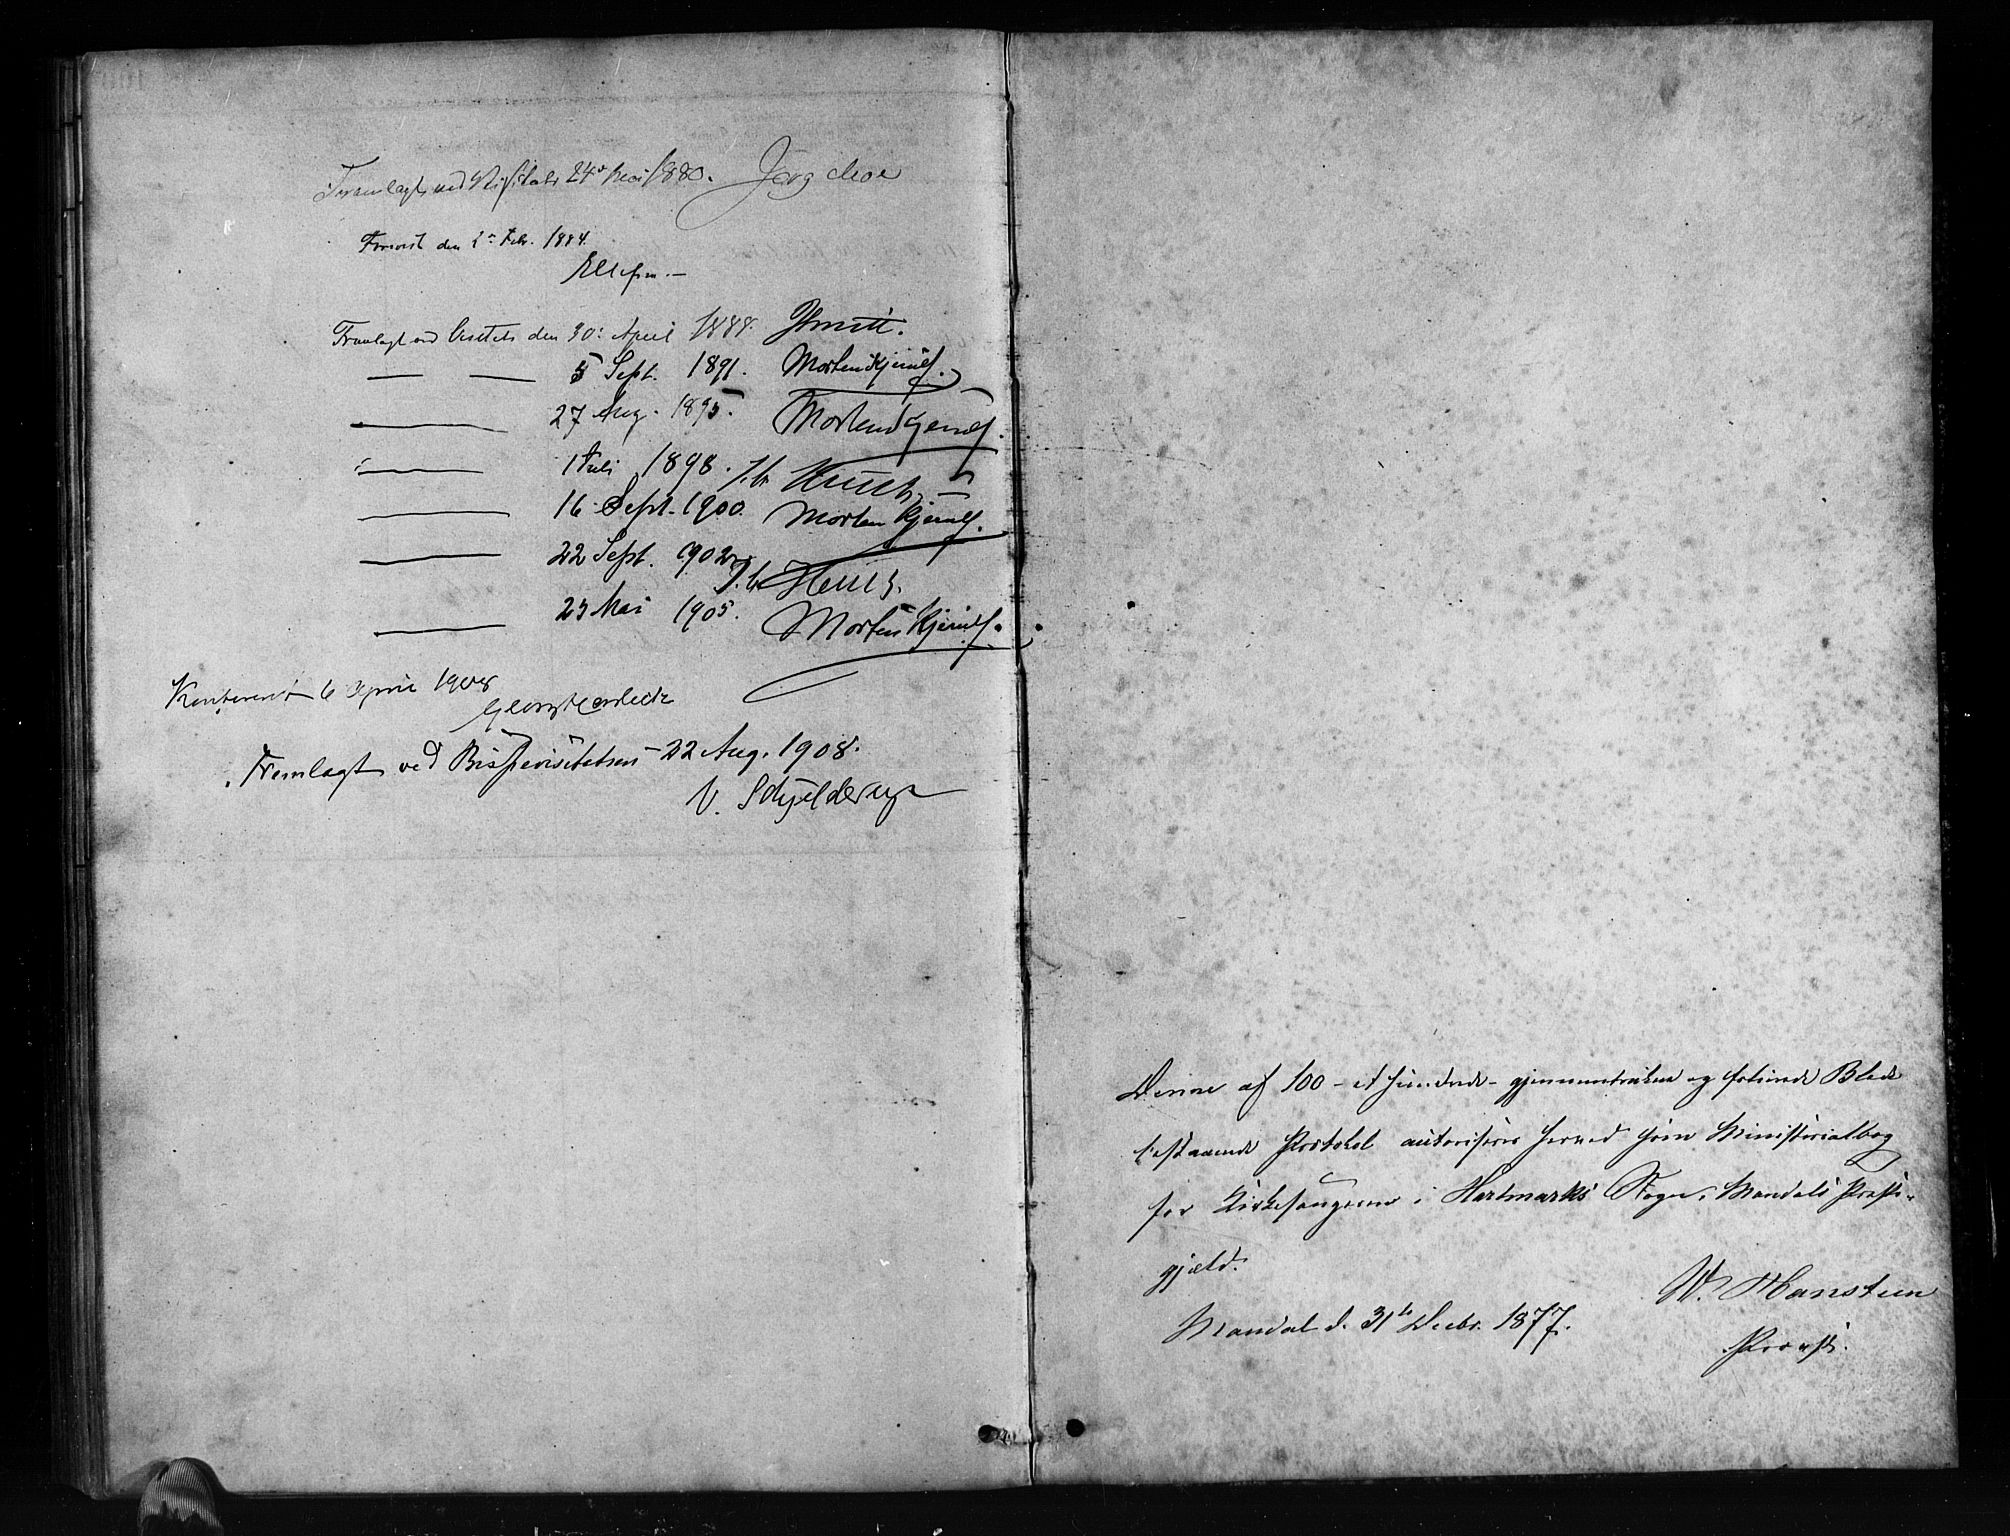 Fremlagt ved Visitats 24de Mai 1880. Jørg Moe
Forevist den 2den Febr. 1884.
Ellefsen. –
Fremlagt ved Visitats den 30: April 1888. JSmitt.
— — 5 Sept. 1891. Morten Kjerulf.
— 27 Aug. 1895. Morten Kjerulf.
— 1 Juli 1898. J.C. Heuch.
— 16 Sept. 1900. Morten Kjerulf.
— 22 Sept. 1902 J.C. Heuch.
— 23 Mai 1905. Morten Kjerulf.
6 April 1908
Fremlagt ved Bispevisitatsen 22 Aug. 1908.
V. Schjelderup
Denne af 100 – et hundrede – gjennemtrukne og folierede Blade
bestaaende Protokol autoriseres herved som Ministerialbog
for Kirkesangeren i Hartmarks Sogn, Mandals Præste-
gjæld.
Mandal d. 31te Decbr. 1877.
Provst.